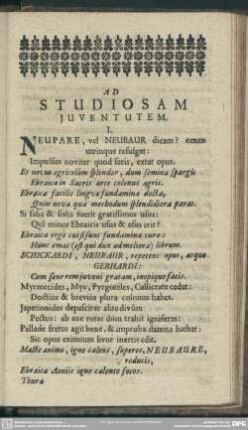 AD
STUDIOSAM
JUVENTUTEM.
I.
NEUPARE, vel NEUBAUR dicam? omen
utrinque refulget:
Impulsus noviter quod serit, extat opus.
Et novus agricolam splendor, dum semina spargis
Ebraica in Sacris arte colenus agris.
Ebraica facilis lingva fundamina docta,
Quin nova quâ methodum splendidiora paras.
Si falsa & solis fuerit gratissimus usus:
Qui minor Ebraicis usus & esus erit?
Ebraica ergò cupissimi fundamina cura:
Hunc emas (est qui dux ad meliora) librum.
SCHICKARDI, NEUBAUR, repetens opus, atque
GERHARDI:
Cum fenerem juveni gratam, inopique facis.
Myrmecides, Mys, Pyrgoteles, Callicrate cedat:
Doctiùs & brevius plura colonus habet.
Japetionides depascitur alite divûm
Pectus: ab axe rotæ dum trahit igniferas:
Pallade fretus agit bene, & improba damna luebat:
Sic opus eximium livor inertis edit.
Macte animo, igne calens, superos, NEUBAURE,
reducis,
Ebraica Aoniis igne calente focos.
Thura